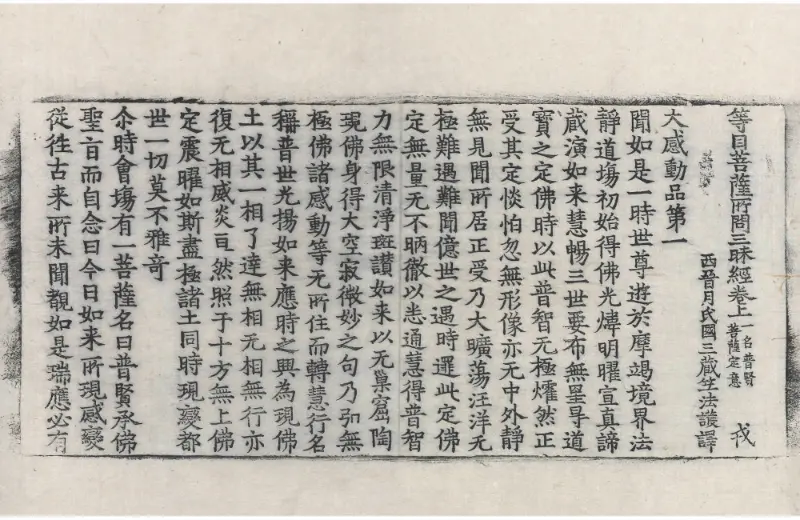 等目菩薩所問三昧經卷上 一名普賢菩薩定意 戎
西晉月氏國三藏竺法護譯
大感動品第一
聞如是一時世尊遊於摩竭境界法
靜道塲初始得佛光煒明曜宣真諦
藏演如来慧暢三世要布無罣㝵道
寶之定佛時以此普智无極燿然正
受其定惔怕忽無形像亦无中外靜
無見聞所居正受乃大曠蕩汪洋无
極難遇難聞億世之遇時遝此定佛
定無量无不昞徹以恚通慧得普智
力無限清淨斑讃如来以无巢窟陶
現佛身得大空寂微妙之句乃弘無
極佛諸感動等无所住而轉慧行名
稱普世光揚如来應時之興為現佛
土以其一相了達無相无相無行亦
復无相威炎亘然照于十方無上佛
定震曜如斯盡極諸土同時現變都
世一切莫不雅奇
尒時會塲有一菩薩名曰普賢承佛
聖旨而自念曰今日如来所現感變
從徃古来所未聞覩如是瑞應必有